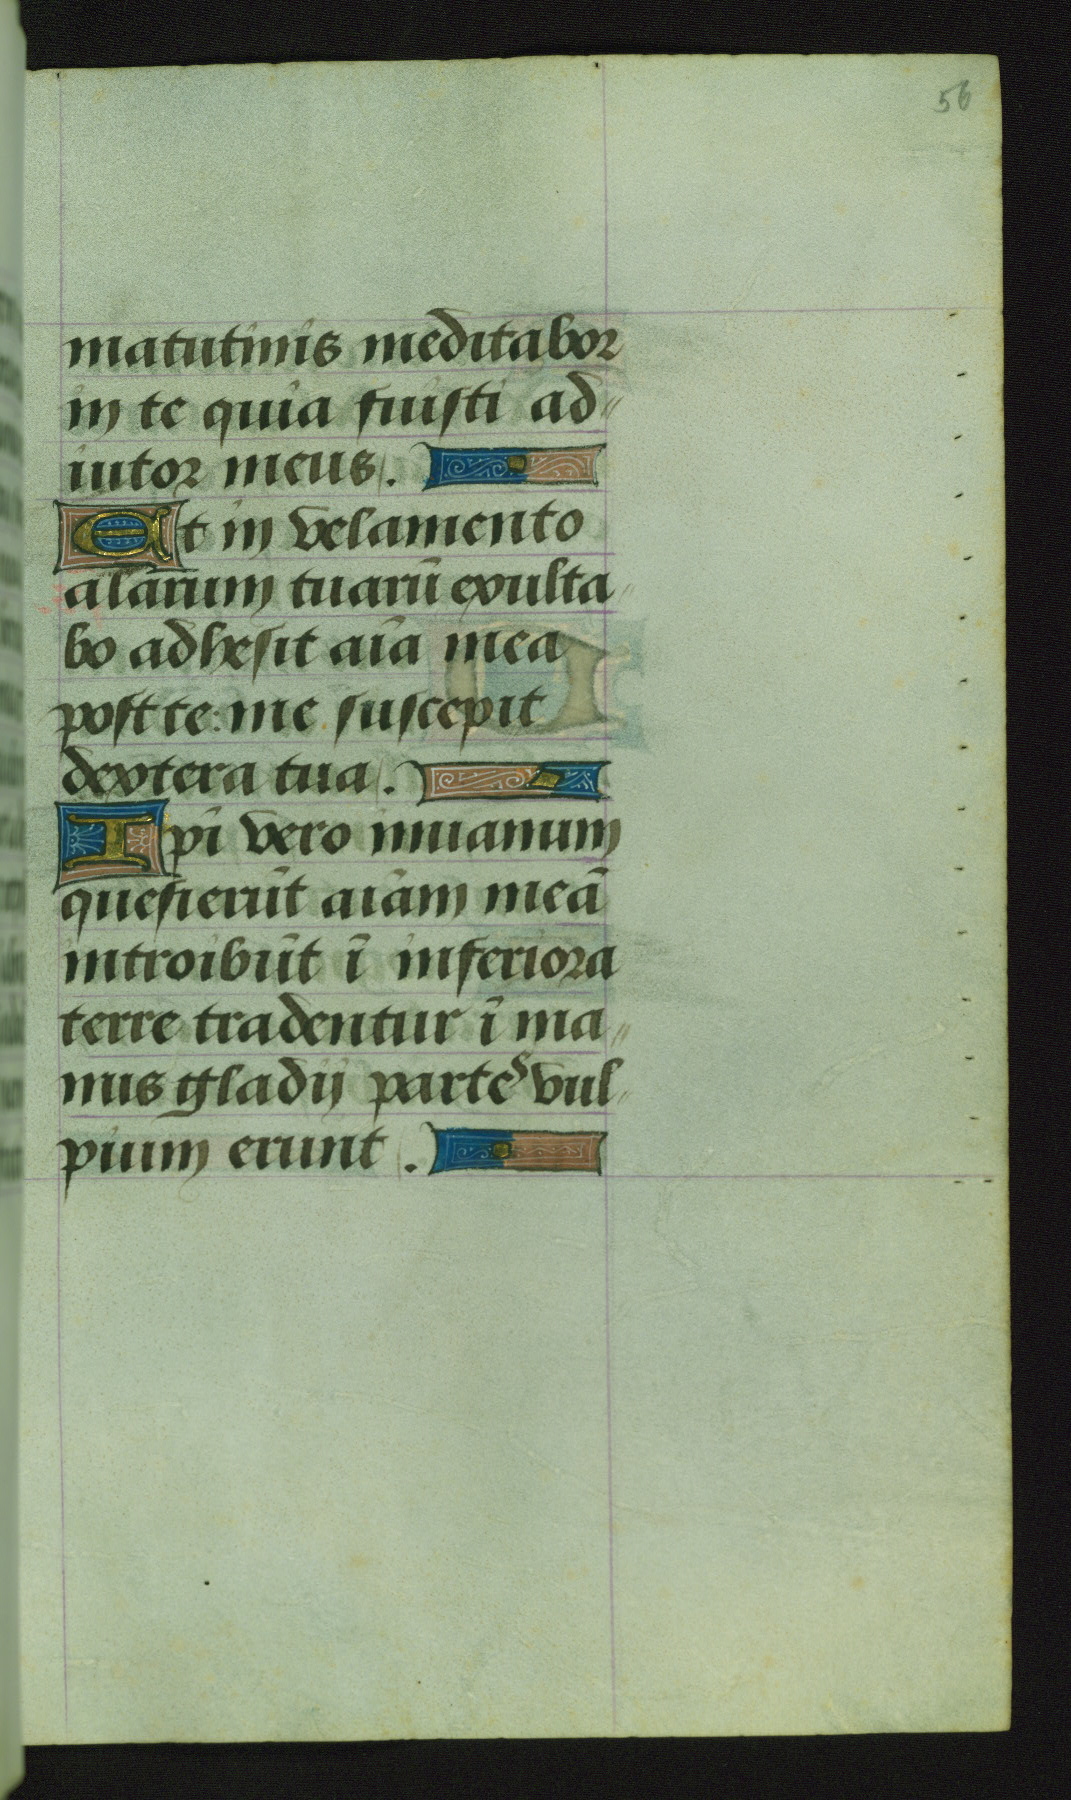 56
matutinis meditabor
in te quia fuisti ad=
iutor meus.
Et in velamento
alarum tuarū exulta-
bo adhesit aīa mea
post te: me suscepit
dextera tua.
Ipi vero inuanum
quesierūt aīam meā
introibūt ī inferiora
terre tradentur ī ma=
nus gladij partes vul-
pium erunt.